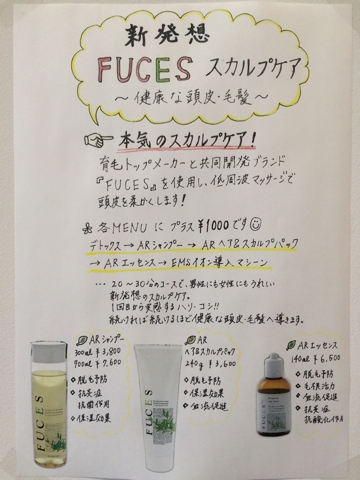 新発想
FUCES スカルプケア
～健康な頭皮・毛髪～
本気のスカルプケア!
育毛トップメーカーと共同開発ブランド
『FUCES』を使用し、低周波マッサージで
頭皮を柔かくします!
各MENUに プラス¥1000です
デトックス→ARシャンプー→ARヘア&スカルプパック
→ARエッセンス→EMSイオン導入マシーン
… 20～30分のコースで、男性にも女性にもうれしい
新発想のスカルプケア。
1回目から実感するハリ・コシ!!
続ければ続けるほど健康な頭皮・毛髪へ導きます。
ARシャンプー
300ml ¥3,800
900ml ¥7,600
脱毛予防
抗炎症
抗菌作用
保湿効果
AR
ヘア&スカルプパック
240g ¥3,600
脱毛予防
保湿効果
血流促進
ARエッセンス
140ml ¥6,500
脱毛予防
毛根活力
血流促進
抗炎症
抗酸化作用
FUCES
FUCES
FUCES